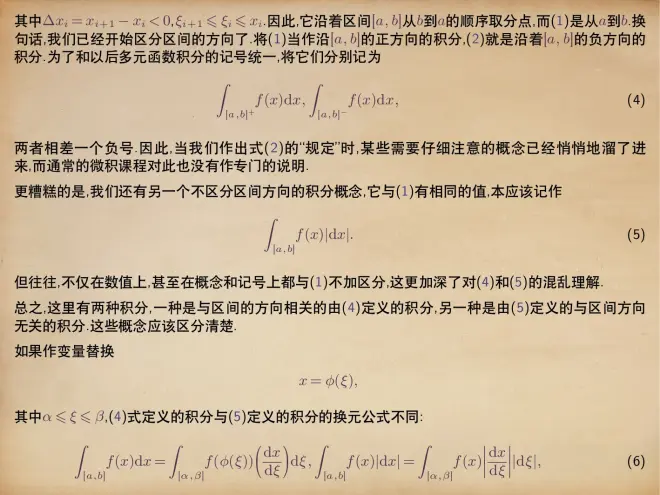 其中Δx_i = x_{i+1} − x_i < 0, ξ_{i+1} ⩽ ξ_i ⩽ x_i. 因此,它沿着区间[a, b]从b到a的顺序取分点,而(1)是从a到b. 换
句话,我们已经开始区分区间的方向了. 将(1)当作沿[a, b]的正方向的积分,(2)就是沿着[a, b]的负方向的
积分. 为了和以后多元函数积分的记号统一,将它们分别记为
∫_{[a,b]^+} f(x)dx, ∫_{[a,b]^-} f(x)dx, (4)
两者相差一个负号. 因此, 当我们作出式(2)的“规定”时, 某些需要仔细注意的概念已经悄悄地溜了进
来,而通常的微积课程对此也没有作专门的说明.
更糟糕的是,我们还有另一个不区分区间方向的积分概念,它与(1)有相同的值,本应该记作
∫_{[a,b]} f(x)|dx|. (5)
但往往,不仅在数值上,甚至在概念和记号上都与(1)不加区分,这更加深了对(4)和(5)的混乱理解.
总之,这里有两种积分,一种是与区间的方向相关的由(4)定义的积分,另一种是由(5)定义的与区间方向
无关的积分. 这些概念应该区分清楚.
如果作变量替换
x = ϕ(ξ),
其中α ⩽ ξ ⩽ β,(4)式定义的积分与(5)定义的积分的换元公式不同:
∫_{[a,b]} f(x)dx = ∫_{[α,β]} f(ϕ(ξ))(dx/dξ)dξ, ∫_{[a,b]} f(x)|dx| = ∫_{[α,β]} f(x)|dx/dξ||dξ|, (6)